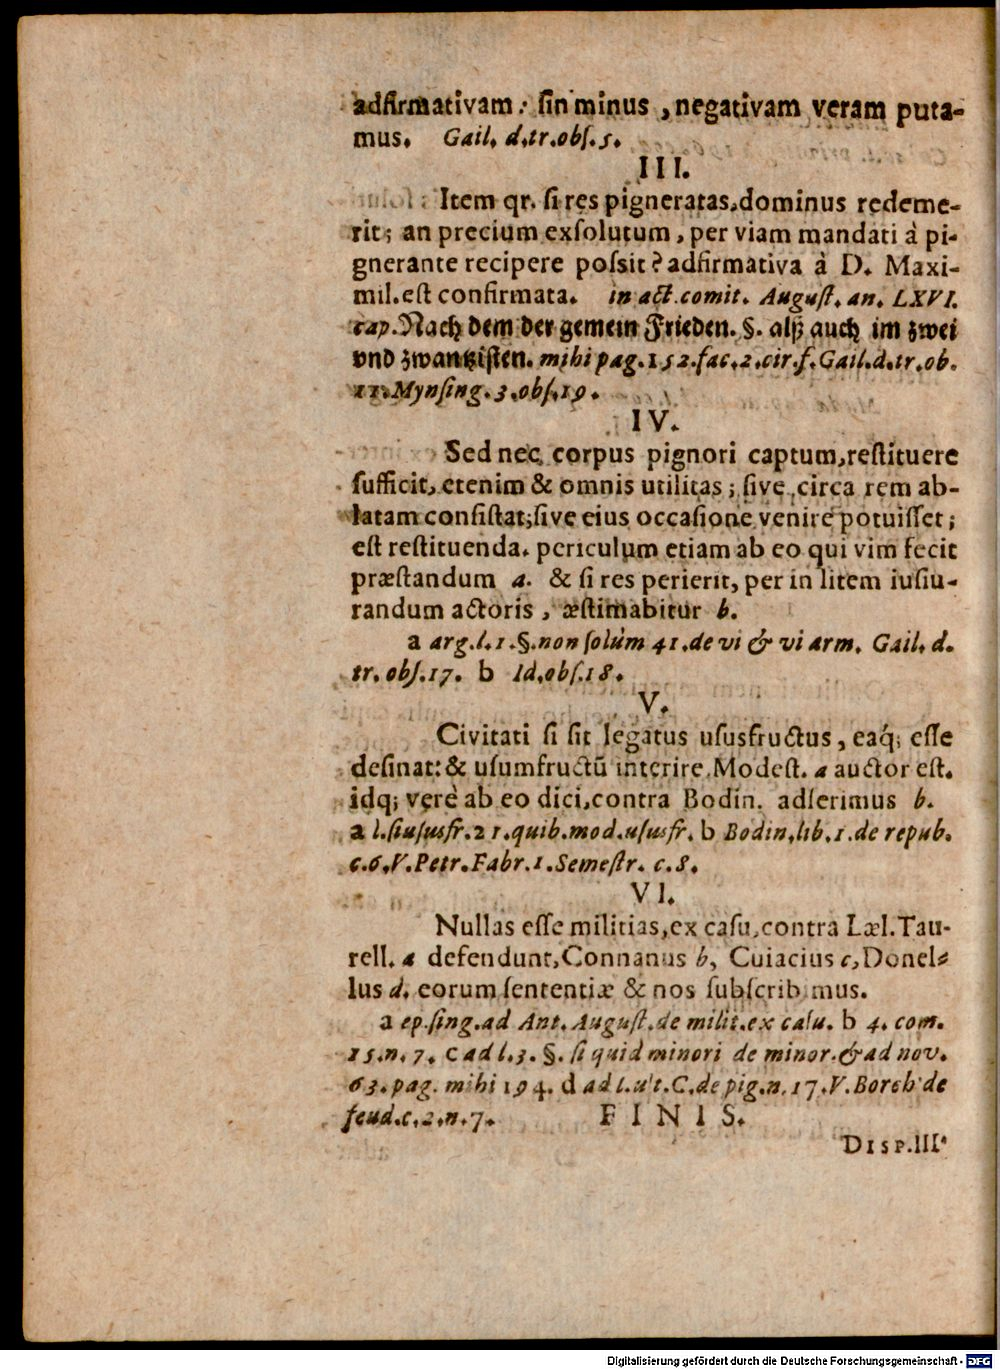 adfirmativam: ſin minus, negativam veram puta-
mus. Gail. d.tr.obſ.5.
III.
Item qr. ſi res pigneratas, dominus redeme-
rit; an precium exſolutum, per viam mandati à pi-
gnerante recipere poſsit? adfirmativa à D. Maxi-
mil. eſt confirmata. in act.comit. Auguſt. an. LXVI.
cap. Nach dem der gemein Frieden. §. alſz auch im zwei
vnd zwantziſten. mihi pag.152.fac.2.cir.f.Gail.d.tr.ob.
11.Mynſing.3.obſ.19.
IV.
Sed nec corpus pignori captum, reſtituere
ſufficit, etenim & omnis utilitas; ſive circa rem ab-
latam conſiſtat; ſive eius occaſione venire potuiſſet;
eſt reſtituenda. periculum etiam ab eo qui vim fecit
præſtandum a. & ſi res perierit, per in litem iuſiu-
randum actoris, æſtimabitur b.
a arg.l.1.§.non ſolùm 41.de vi & vi arm. Gail. d.
tr. obſ.17. b Id.obſ.18.
V.
Civitati ſi ſit legatus uſusfructus, eaq́; eſſe
deſinat: & uſumfructũ interire, Modeſt. a auctor eſt.
idq; verè ab eo dici, contra Bodin. adſerimus b.
a l.ſi uſusfr.21.quib.mod.uſusfr. b Bodin.lib.1.de repub.
c.6.V.Petr.Fabr.1.Semeſtr. c.8.
VI.
Nullas eſſe militias, ex caſu, contra Læl. Tau-
rell. a defendunt, Connanus b, Cuiacius c, Donel-
lus d. eorum ſententiæ & nos ſubſcribimus.
a ep.ſing.ad Ant. Auguſt.de milit.ex caſu. b 4. com.
15.n.7. c ad l.3. §. ſi quid minori de minor. & ad nov.
63.pag. mihi 194. d ad l.ult.C.de pig.n.17.V.Borch de
feud.c.2.n.7. FINIS.
DISP.III.
Digitalisierung gefördert durch die Deutsche Forschungsgemeinschaft - DFG